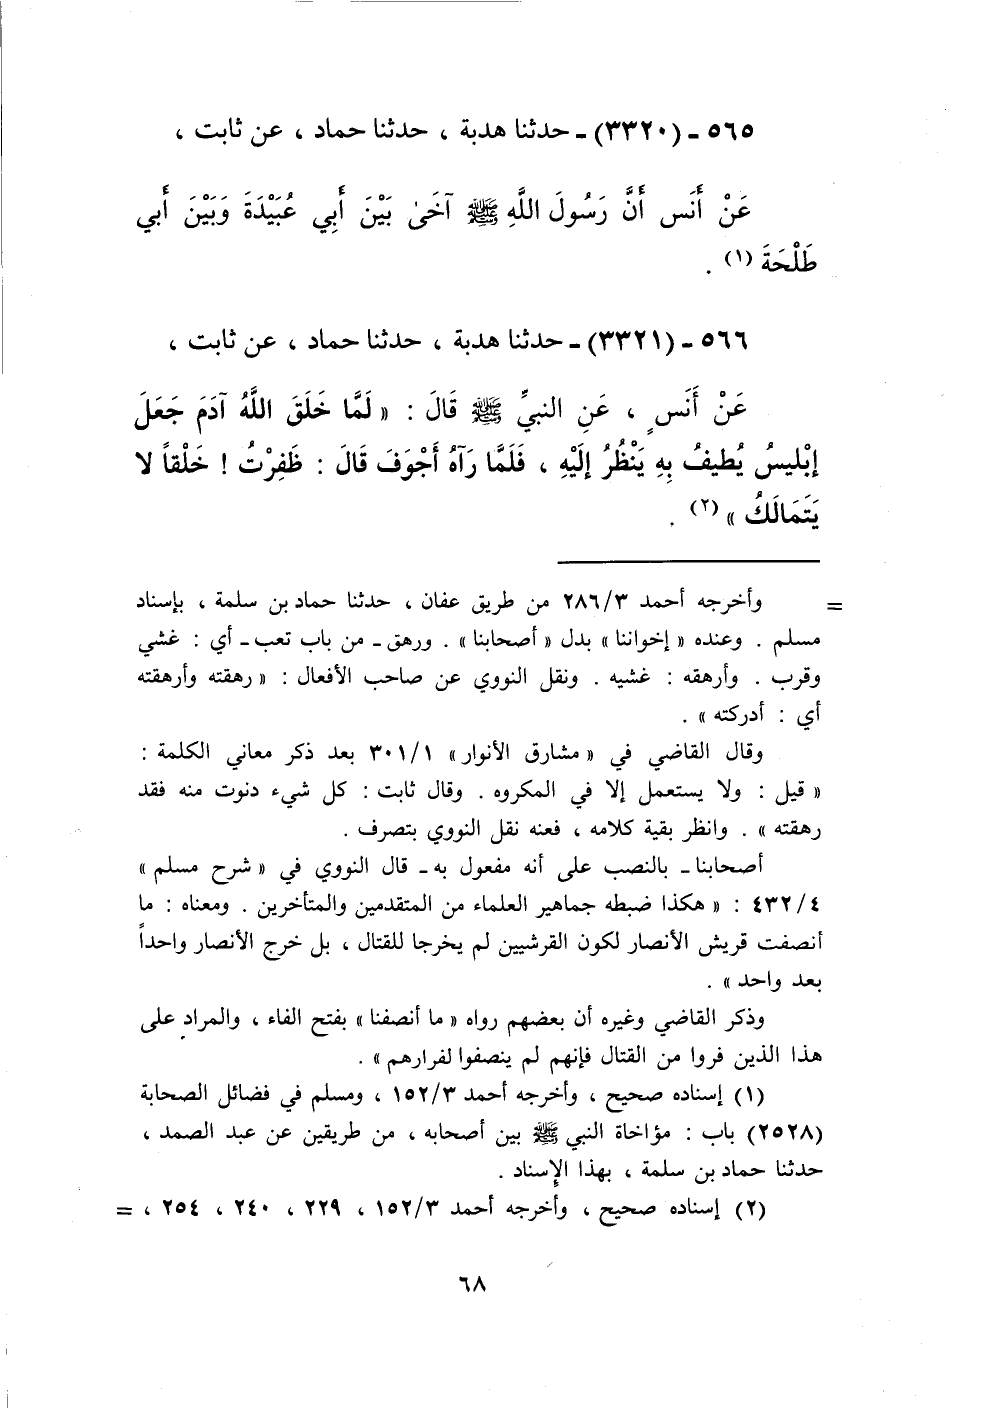 ٥٦٥ ـ (٣٣٢٠) ـ حدثنا هدبة ، حدثنا حماد ، عن ثابت ،
عَنْ أَنَس أَنَّ رَسُولَ اللَّهِ ﷺ آخَىٰ بَيْنَ أَبِي عُبَيْدَةَ وَبَيْنَ أَبي
طَلْحَةَ (١) .
٥٦٦ ـ (٣٣٢١) ـ حدثنا هدبة ، حدثنا حماد ، عن ثابت ،
عَنْ أَنَسٍ ، عَنِ النبيِّ ﷺ قَالَ : « لَمَّا خَلَقَ اللَّهُ آدَمَ جَعَلَ
إبْليسُ يُطيفُ بِهِ يَنْظُرُ إلَيْهِ ، فَلَمَّا رَآهُ أَجْوَفَ قَالَ : ظَفِرْتُ ! خَلْقاً لا
يَتَمَالَكُ » (٢) .
= وأخرجه أحمد ٢٨٦/٣ من طريق عفان ، حدثنا حماد بن سلمة ، بإسناد
مسلم . وعنده « إخواننا » بدل « أصحابنا » . ورهق ـ من باب تعب ـ أي : غشي
وقرب . وأرهقه : غشيه . ونقل النووي عن صاحب الأفعال : « رهقته وأرهقته
أي : أدركته » .
وقال القاضي في « مشارق الأنوار » ٣٠١/١ بعد ذكر معاني الكلمة :
« قيل : ولا يستعمل إلا في المكروه . وقال ثابت : كل شيء دنوت منه فقد
رهقته » . وانظر بقية كلامه ، فعنه نقل النووي بتصرف .
أصحابنا ـ بالنصب على أنه مفعول به ـ قال النووي في « شرح مسلم »
٤٣٢/٤ : « هكذا ضبطه جماهير العلماء من المتقدمين والمتأخرين . ومعناه : ما
أنصفت قريش الأنصار لكون القرشيين لم يخرجا للقتال ، بل خرج الأنصار واحداً
بعد واحد » .
وذكر القاضي وغيره أن بعضهم رواه « ما أنصفنا » بفتح الفاء ، والمراد على
هذا الذين فروا من القتال فإنهم لم ينصفوا لفرارهم » .
(١) إسناده صحيح ، وأخرجه أحمد ١٥٢/٣ ، ومسلم في فضائل الصحابة
(٢٥٢٨) باب : مؤاخاة النبي ﷺ بين أصحابه ، من طريقين عن عبد الصمد ،
حدثنا حماد بن سلمة ، بهذا الإسناد .
(٢) إسناده صحيح ، وأخرجه أحمد ١٥٢/٣ ، ٢٢٩ ، ٢٤٠ ، ٢٥٤ ، =
٦٨